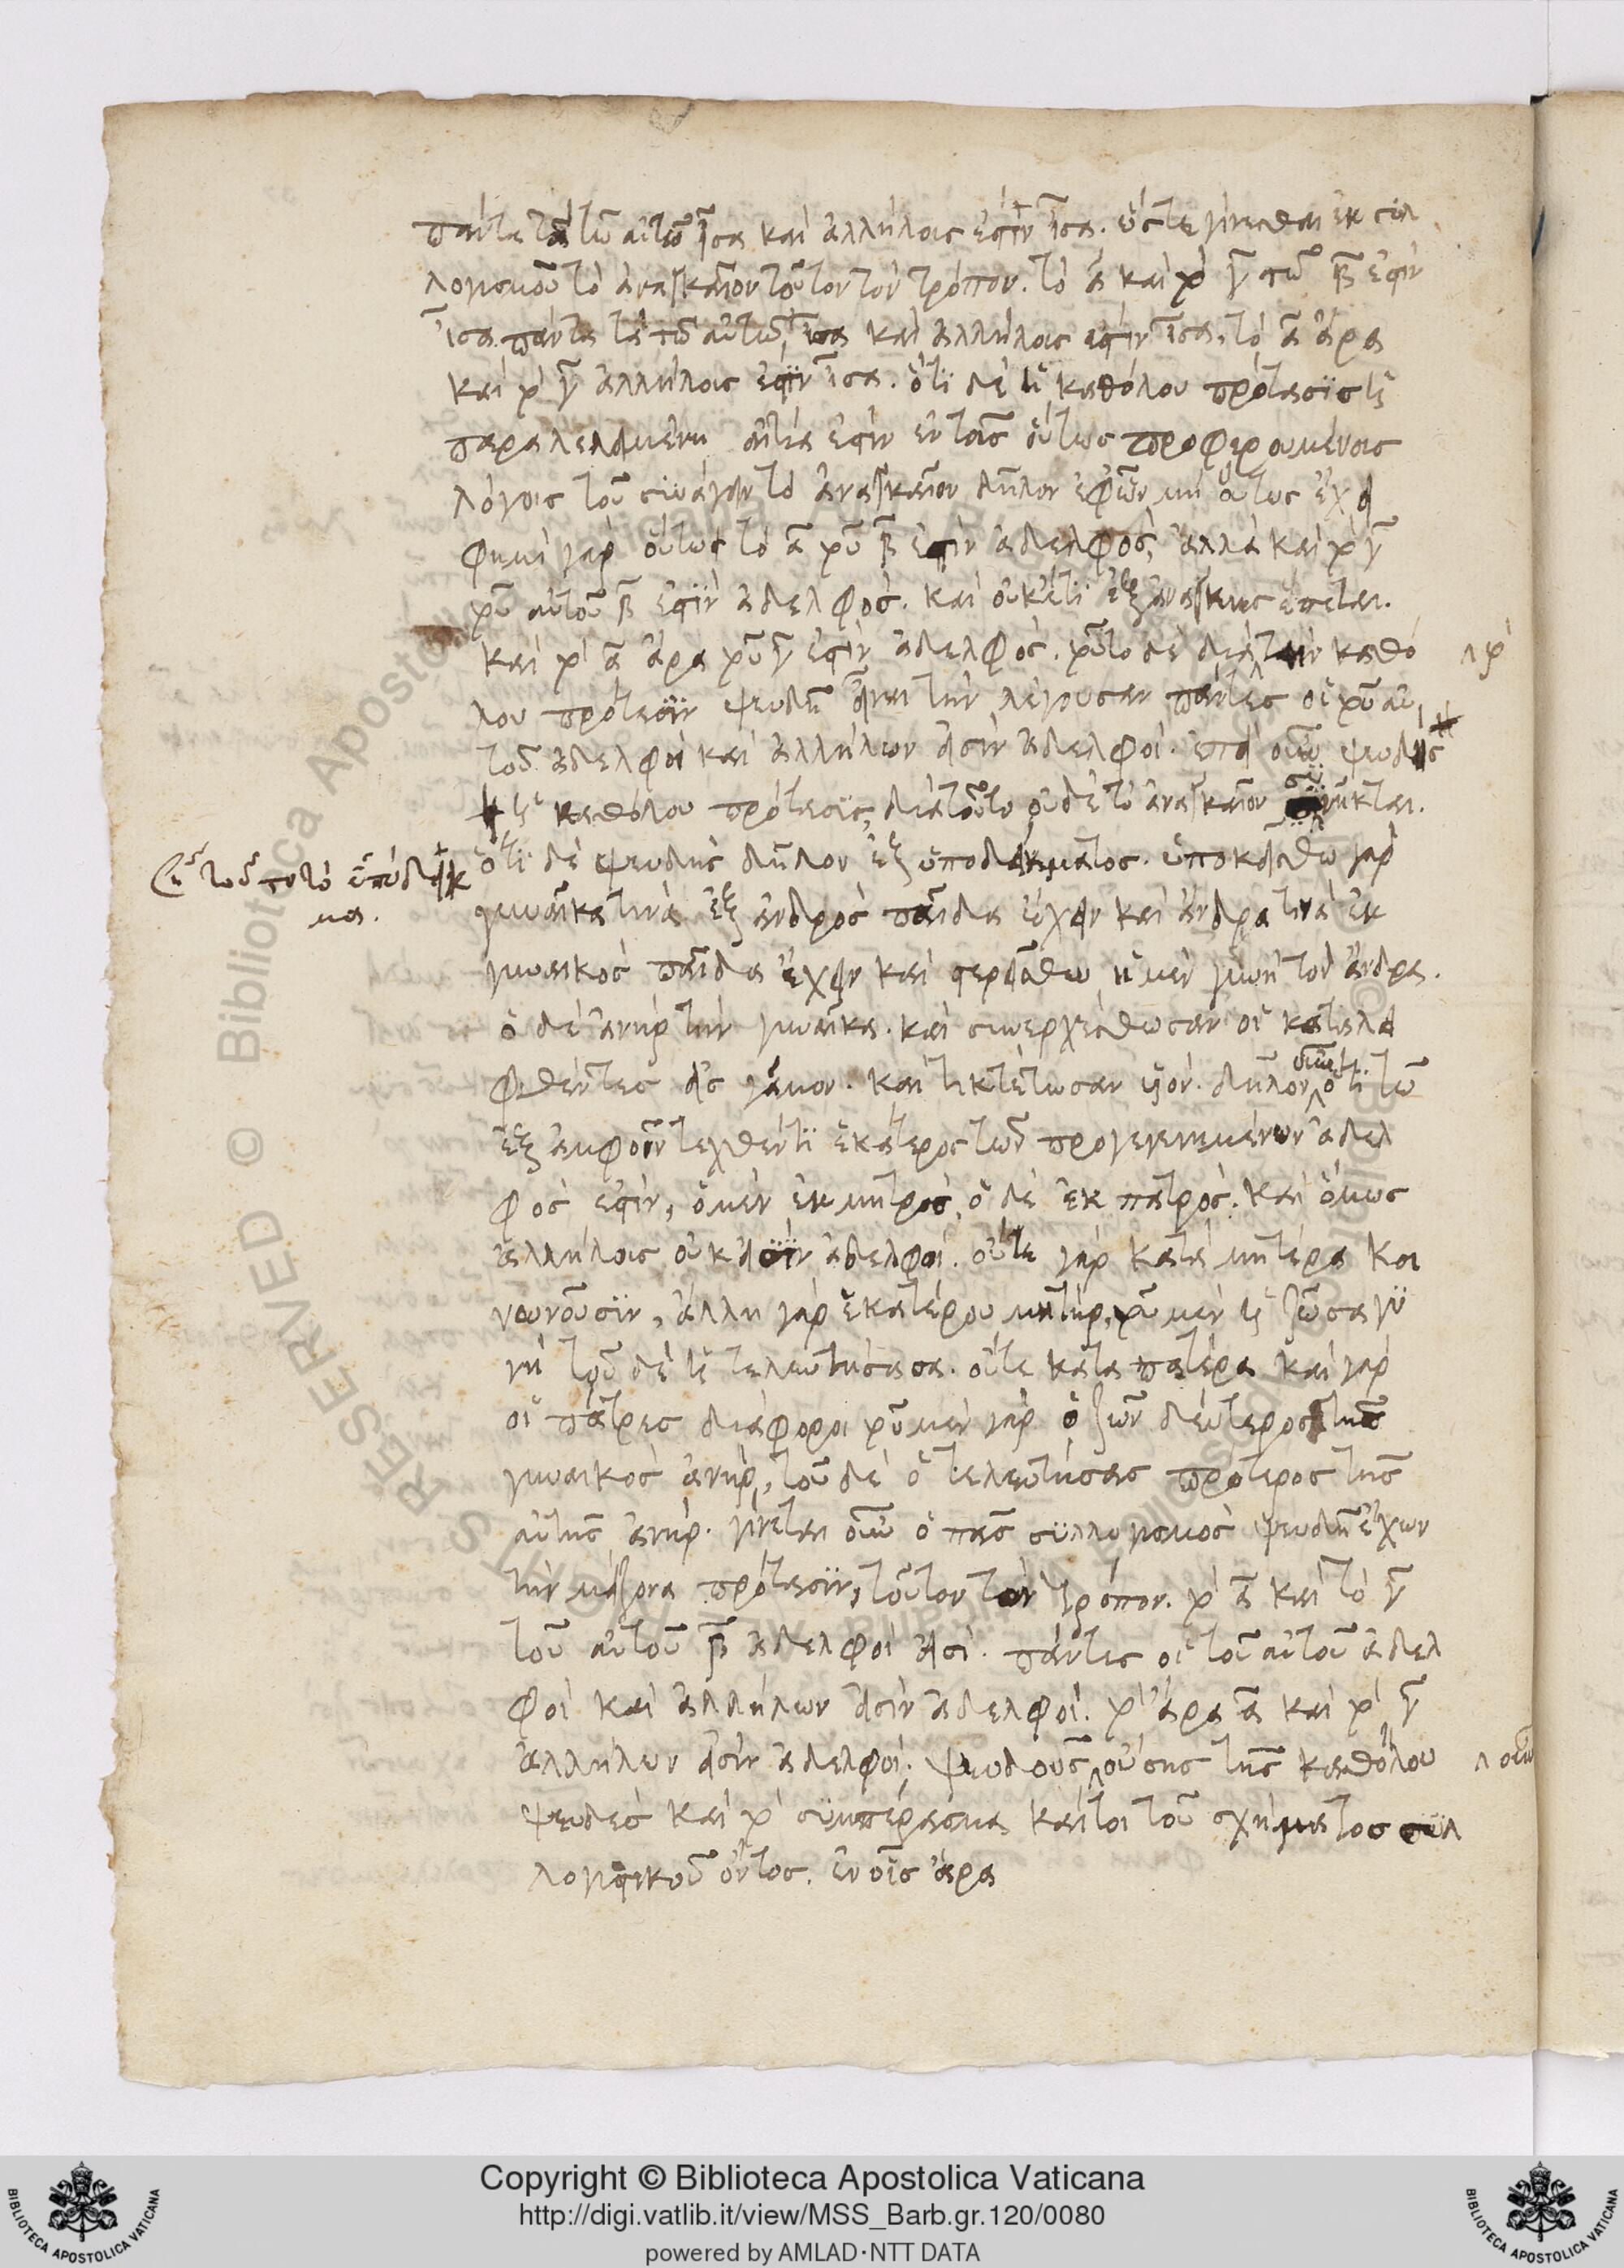 πάντα τὰ τῶ αὐτῶ ἴσα καὶ ἀλλήλοις ἐστὶν ἴσα. ὥστε γίνεσθαι ἐκ συλ
λογισμοῦ τὸ ἀναγκαῖον τοῦτον τὸν τρόπον. τὸ α καὶ τὸ γ τῶ β ἐστὶν
ἴσα. πάντα τὰ τῶ αὐτῶ ἴσα καὶ ἀλλήλοις ἐστὶν ἴσα, τὸ α ἄρα
καὶ τὸ γ ἀλλήλοις ἐστὶν ἴσα. ὅτι δὲ ἡ καθόλου πρότασϊς ἡ
παραλελειμένη αἰτία ἐστὶν ἐν τοῖς οὕτως προφερουμένοις
λόγοις τοῦ συνάγειν τὸ ἀναγκαῖον δῆλον ἐφ' ὧν μὴ οὕτως ἔχει
φημὶ γὰρ οὕτως τὸ α τοῦ β ἐστὶν ἀδελφὸς, ἀλλὰ καὶ τὸ γ
τοῦ αὐτοῦ β ἐστῒν ἀδελφός. καὶ οὐκέτϊ ἐξ ἀνάγκης ἕπεται.
καὶ τὸ α ἄρα τοῦ γ ἐστὶν ἀδελφός. τοῦτο δὲ διὰ τὴν καθό
λου πρότασϊν ψευδῆ εἶναι τὴν λέγουσαν πάντες οἱ τοῦ αὐ
τοῦ ἀδελφοὶ καὶ ἀλλήλων εἰσὶν ἀδελφοί. ἐπεὶ οὖν ψευδὴς
ἡ καθόλου πρότασϊς, διὰ τοῦτο οὐδὲ τὸ ἀναγκαῖον συνῆκται.
ὅτϊ δὲ ψευδὴς δῆλον ἐξ ὑποδείγματος. ὑποκείσθω γὰρ
τοῦτο τὸ ὑπόδειγ
μα.
γυναῖκα τινὰ ἐξ ἀνδρὸς παῖδα ἔχειν καὶ ἄνδρα τινὰ ἐκ
γυναικὸς παῖδα ἔχειν καὶ στερείσθω ἡ μὲν γυνὴ τὸν ἄνδρα.
ὁ δὲ ἀνὴρ τὴν γυναῖκα. καὶ συνερχέσθωσαν οἱ καταλει
φθέντες εἰς γάμον. καὶ τικτέτωσαν υἱόν. δῆλον ὅτι τῶ
ἐξ ἀμφοῖν τεχθέντϊ ἑκάτερος τῶν προγεγενημένων ἀδελ
φὸς ἐστὶν, ὁ μὲν ἐκ μητρὸς, ὁ δὲ ἐκ πατρός. καὶ ὅμως
ἀλλήλοις οὐκ εἰσῒν ἀδελφοί. οὔτε γὰρ κατὰ μητέρα κοι
νωνοῦσϊν, ἄλλη γὰρ ἑκατέρου μήτηρ, τοῦ μὲν ἡ ζῶσα γυ
νὴ τοῦ δὲ ἡ τελευτήσασα. οὔτε κατὰ πατέρα καὶ γὰρ
οἱ πατρες διάφοροι τοῦ μὲν γὰρ ὁ ζῶν δεύτερος τῆς
γυναικὸς ἀνὴρ, τοῦ δὲ ὁ τελευτήσας πρότερος τῆς
αὐτῆς ἀνήρ. γίνεται οὖν ὁ πᾶς συλλογισμὸς ψευδῆ ἔχων
τὴν μείζονα πρότασϊν, τοῦτον τὸν τρόπον. τὸ α καὶ τὸ γ
τοῦ αὐτοῦ β ἀδελφοὶ εἰσί. πάντες οἱ τοῦ αὐτοῦ ἀδελ
φοὶ καὶ ἀλλήλων εἰσὶν ἀδελφοὶ. τὸ ἄρα α καὶ τὸ γ
ἀλλήλων εἰσὶν ἀδελφοί. ψευδοῦς οὔσης τῆς καθόλου
οὖν
ψευδὲς καὶ τὸ συμπέρασμα καίτοι τοῦ σχήματος συλ
λογιστικοῦ ὄντος. ἐν οἷς ἄρα
Copyright © Biblioteca Apostolica Vaticana
http://digi.vatlib.it/view/MSS_Barb.gr.120/0080
powered by AMLAD·NTT DATA
BIBLIOTECA APOSTOLICA VATICANA
BIBLIOTECA APOSTOLICA VATICANA